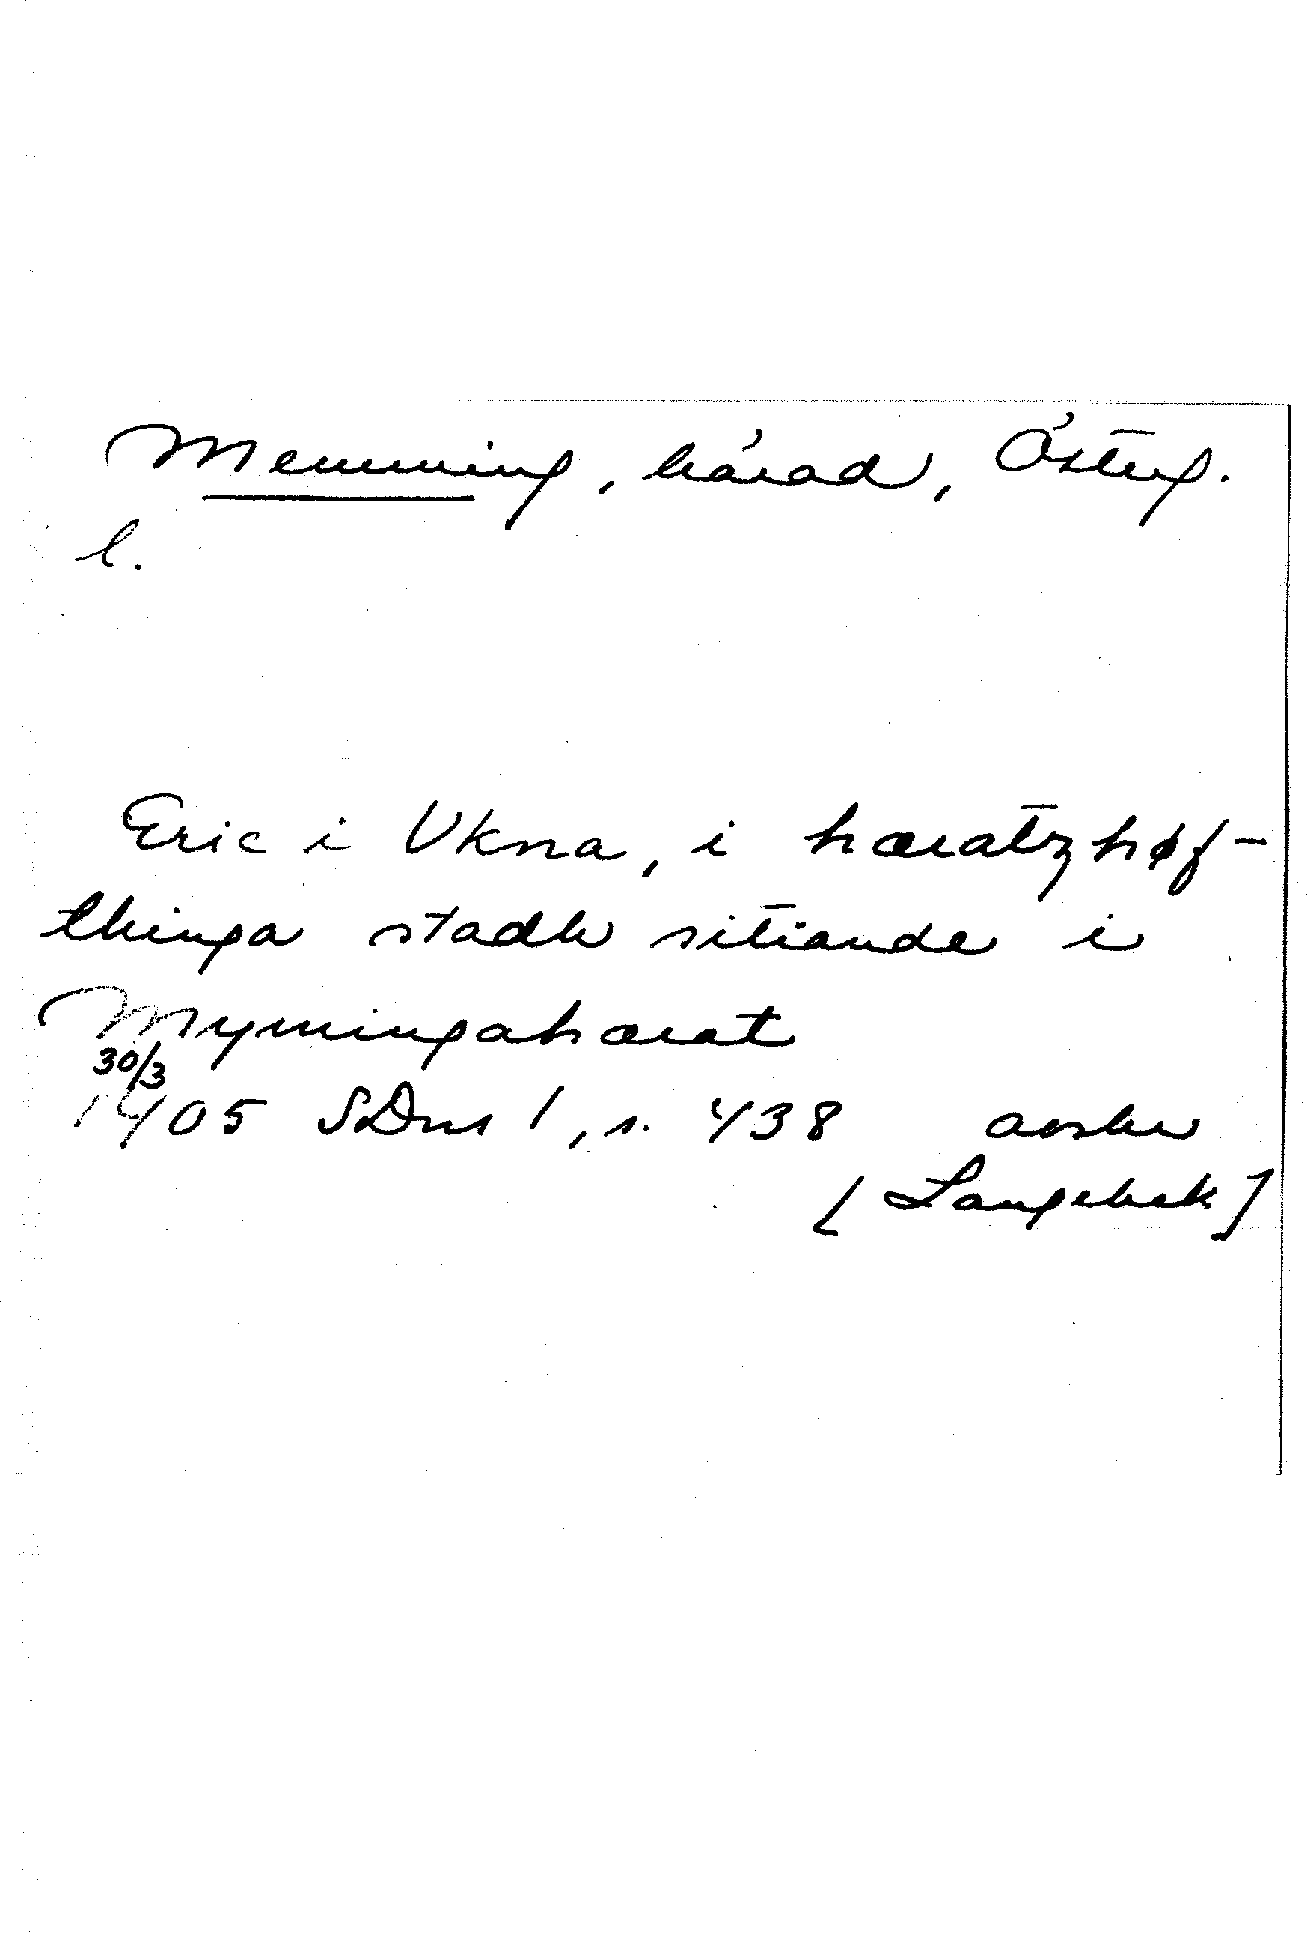 Memming, härad, Österg.
l.
Eric i Ukna, i hæratzhøf-
thinga stadh sitiande i
Mymingahærat
30/3
1405 SDns 1, s. 438 avskr
[Langebek]